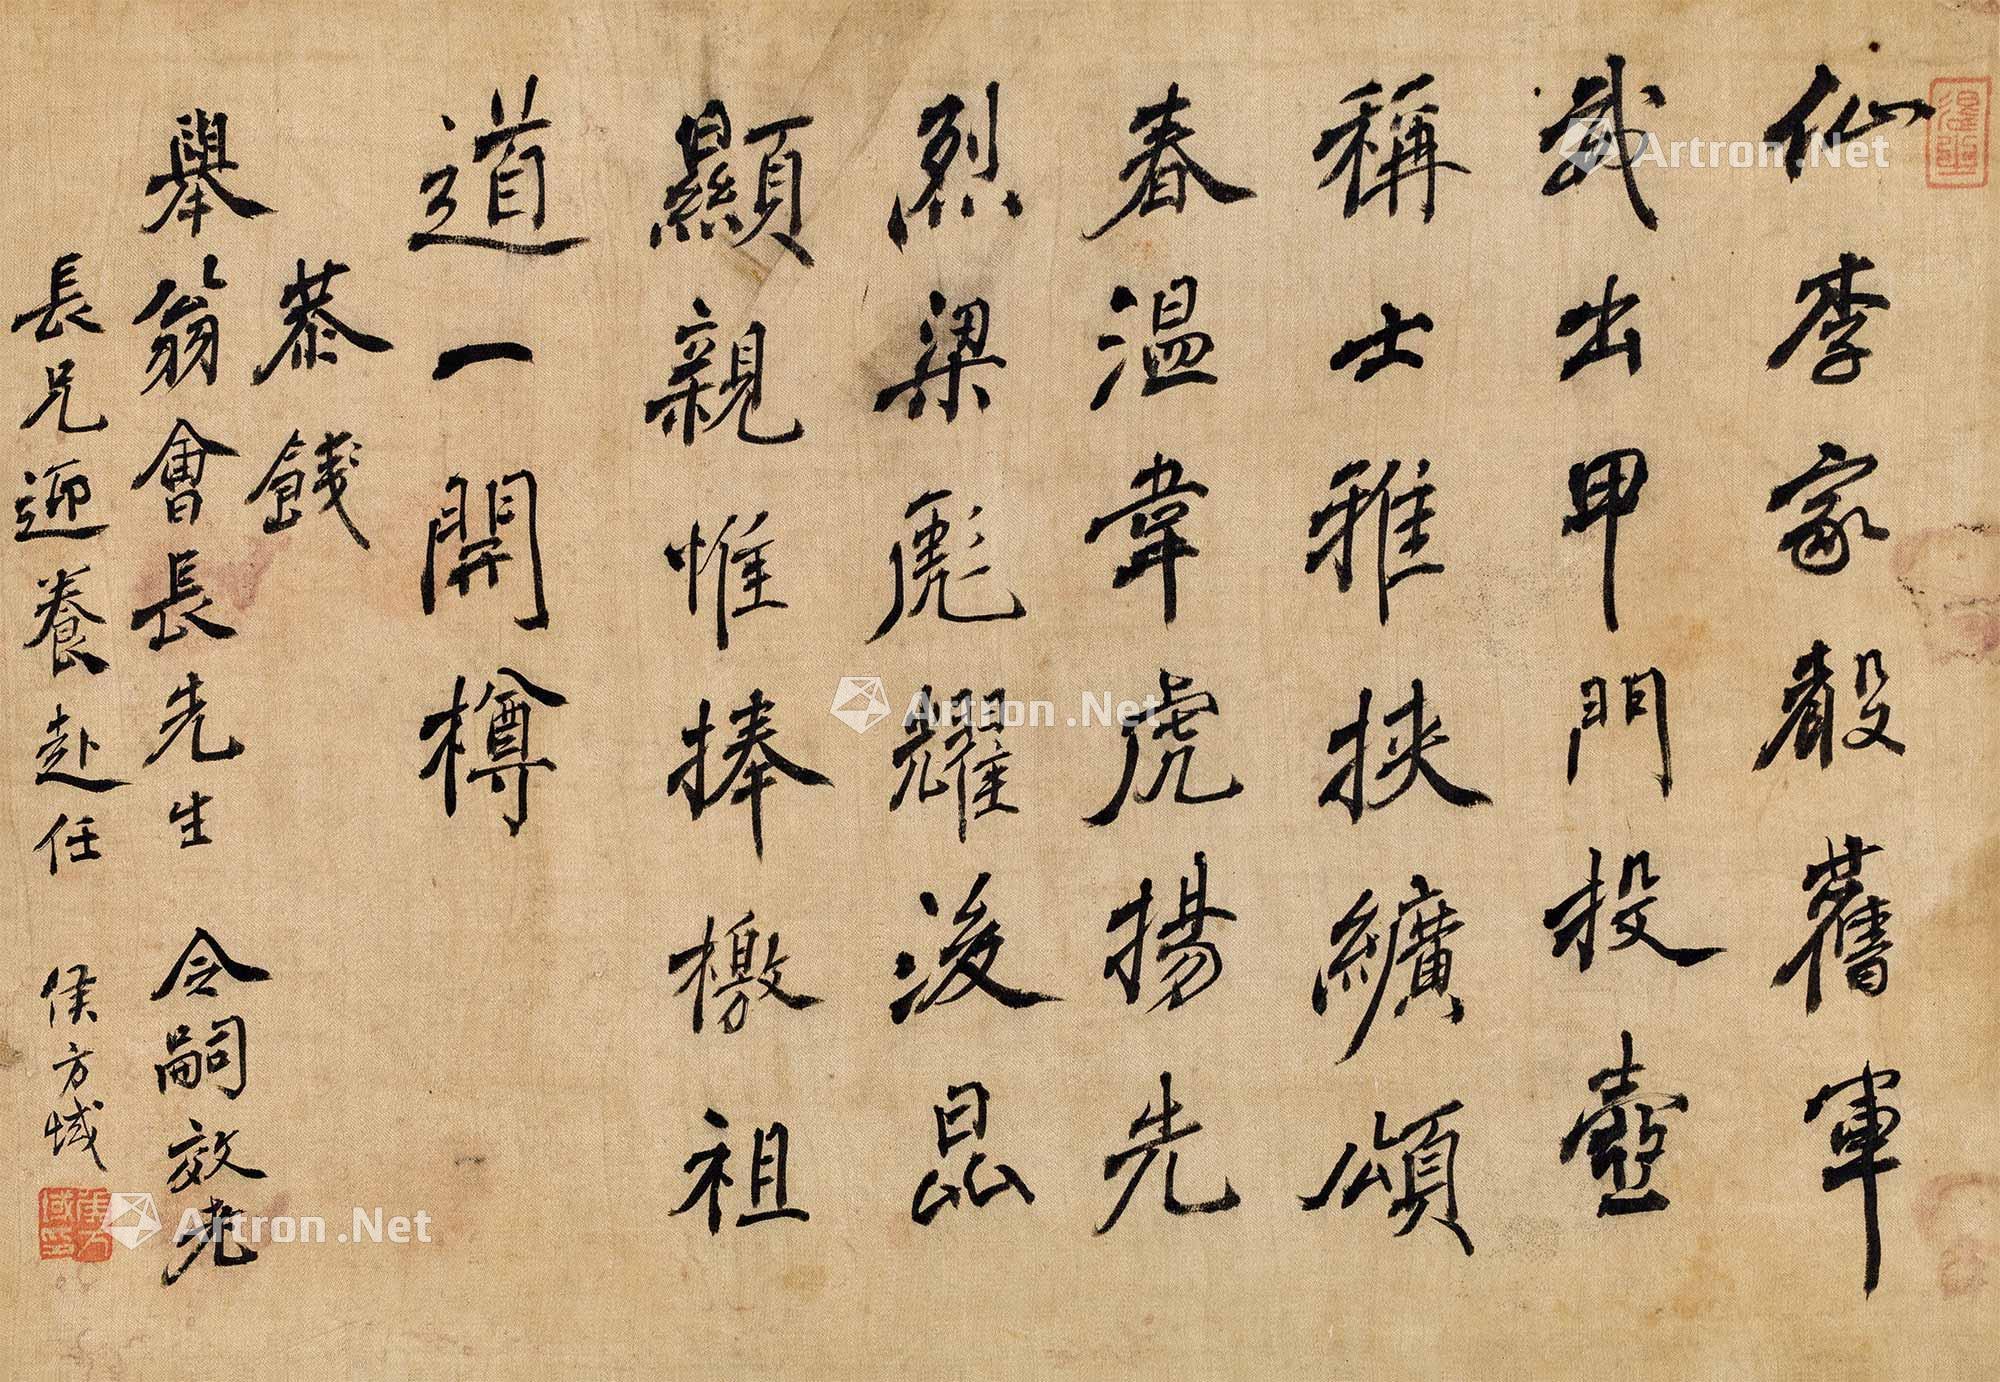 仙李家聲舊軍
武出甲門投壺
稱士雅挾纊頌
春溫韋虎揚先
烈梁彪耀後昆
顯親惟捧檄祖
道一開樽
恭餞
舉翁會長先生 令嗣效老
長兄迎養赴任 侯方域
Artron.Net
Artron.Net
Artron.Net